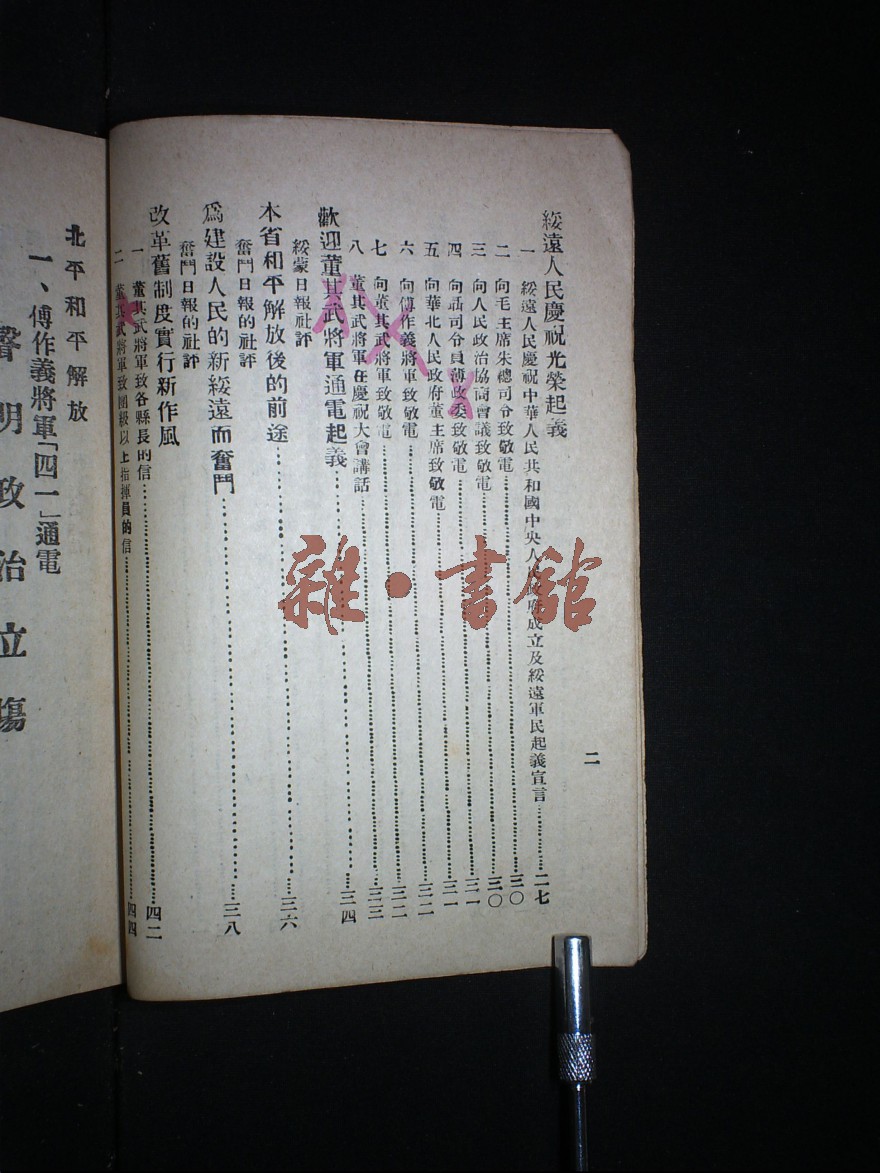 綏遠人民慶祝光榮起義
一 綏遠人民慶祝中華人民共和國中央人民政府成立及綏遠軍民起義宣言……二七
二 向毛主席朱總司令致敬電……三〇
三 向人民政治協商會議致敬電……三〇
四 向聶司令員薄政委致敬電……三一
五 向華北人民政府董主席致敬電……三一
六 向傅作義將軍致敬電……三二
七 向董其武將軍致敬電……三二
八 董其武將軍在慶祝大會講話……三三
歡迎董其武將軍通電起義……三四
綏蒙日報社評
本省和平解放後的前途……三六
奮鬥日報的社評
爲建設人民的新綏遠而奮鬥……三八
奮鬥日報的社評
改革舊制度實行新作風
一 董其武將軍致各縣長的信……四二
二 董其武將軍致團級以上指揮員的信……四四
二
北平和平解放
一、傅作義將軍「四一」通電
聲明政治立場
雜·書館